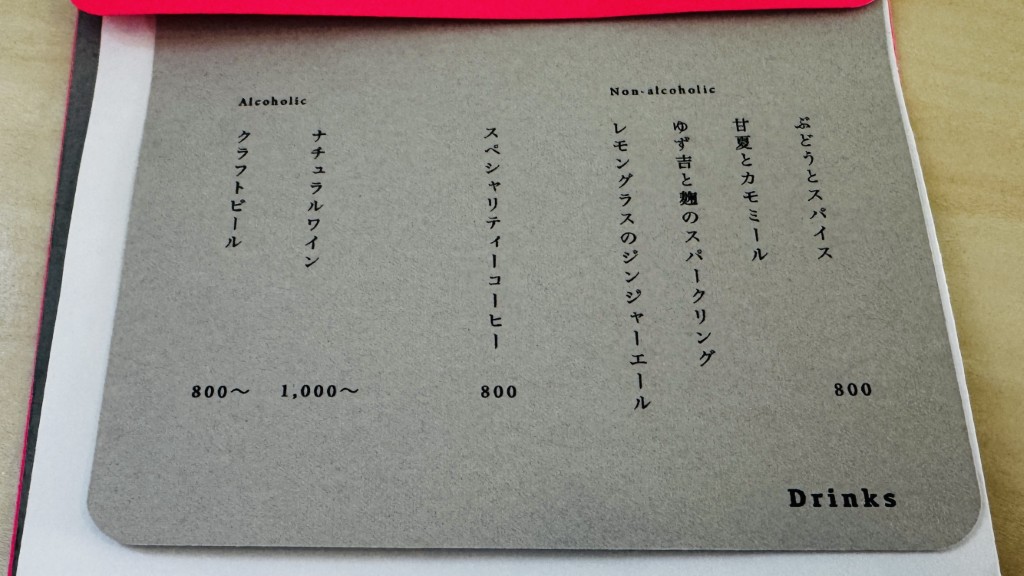 Non-alcoholic
ぶどうとスパイス
甘夏とカモミール
ゆず吉と麹のスパークリング
レモングラスのジンジャーエール
800
スペシャリティーコーヒー
800
Alcoholic
ナチュラルワイン
1,000〜
クラフトビール
800〜
Drinks